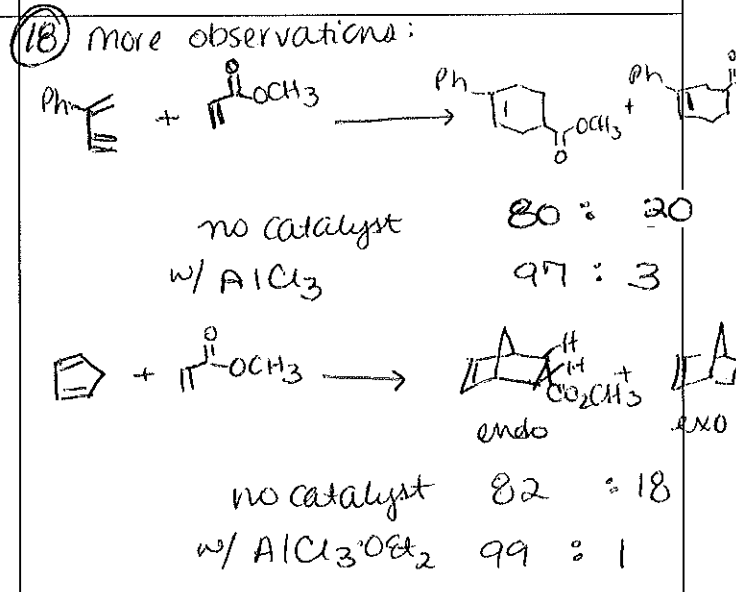 18 more observations:
Ph + O OCH3 → Ph OCH3 O + Ph O
no catalyst 80 : 20
w/ AlCl3 97 : 3
+ O OCH3 → H H CO2CH3 +
endo exo
no catalyst 82 : 18
w/ AlCl3·OEt2 99 : 1